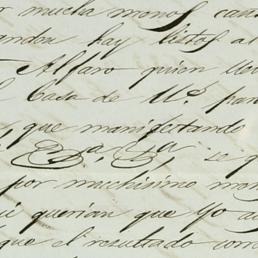 r mucha menos can
andra hay listos al
Alfaro quien llev
l Casa de Ud. para
, que manifestando
se q
por muchisimo mon
querian que Yo a
que el resultado corr